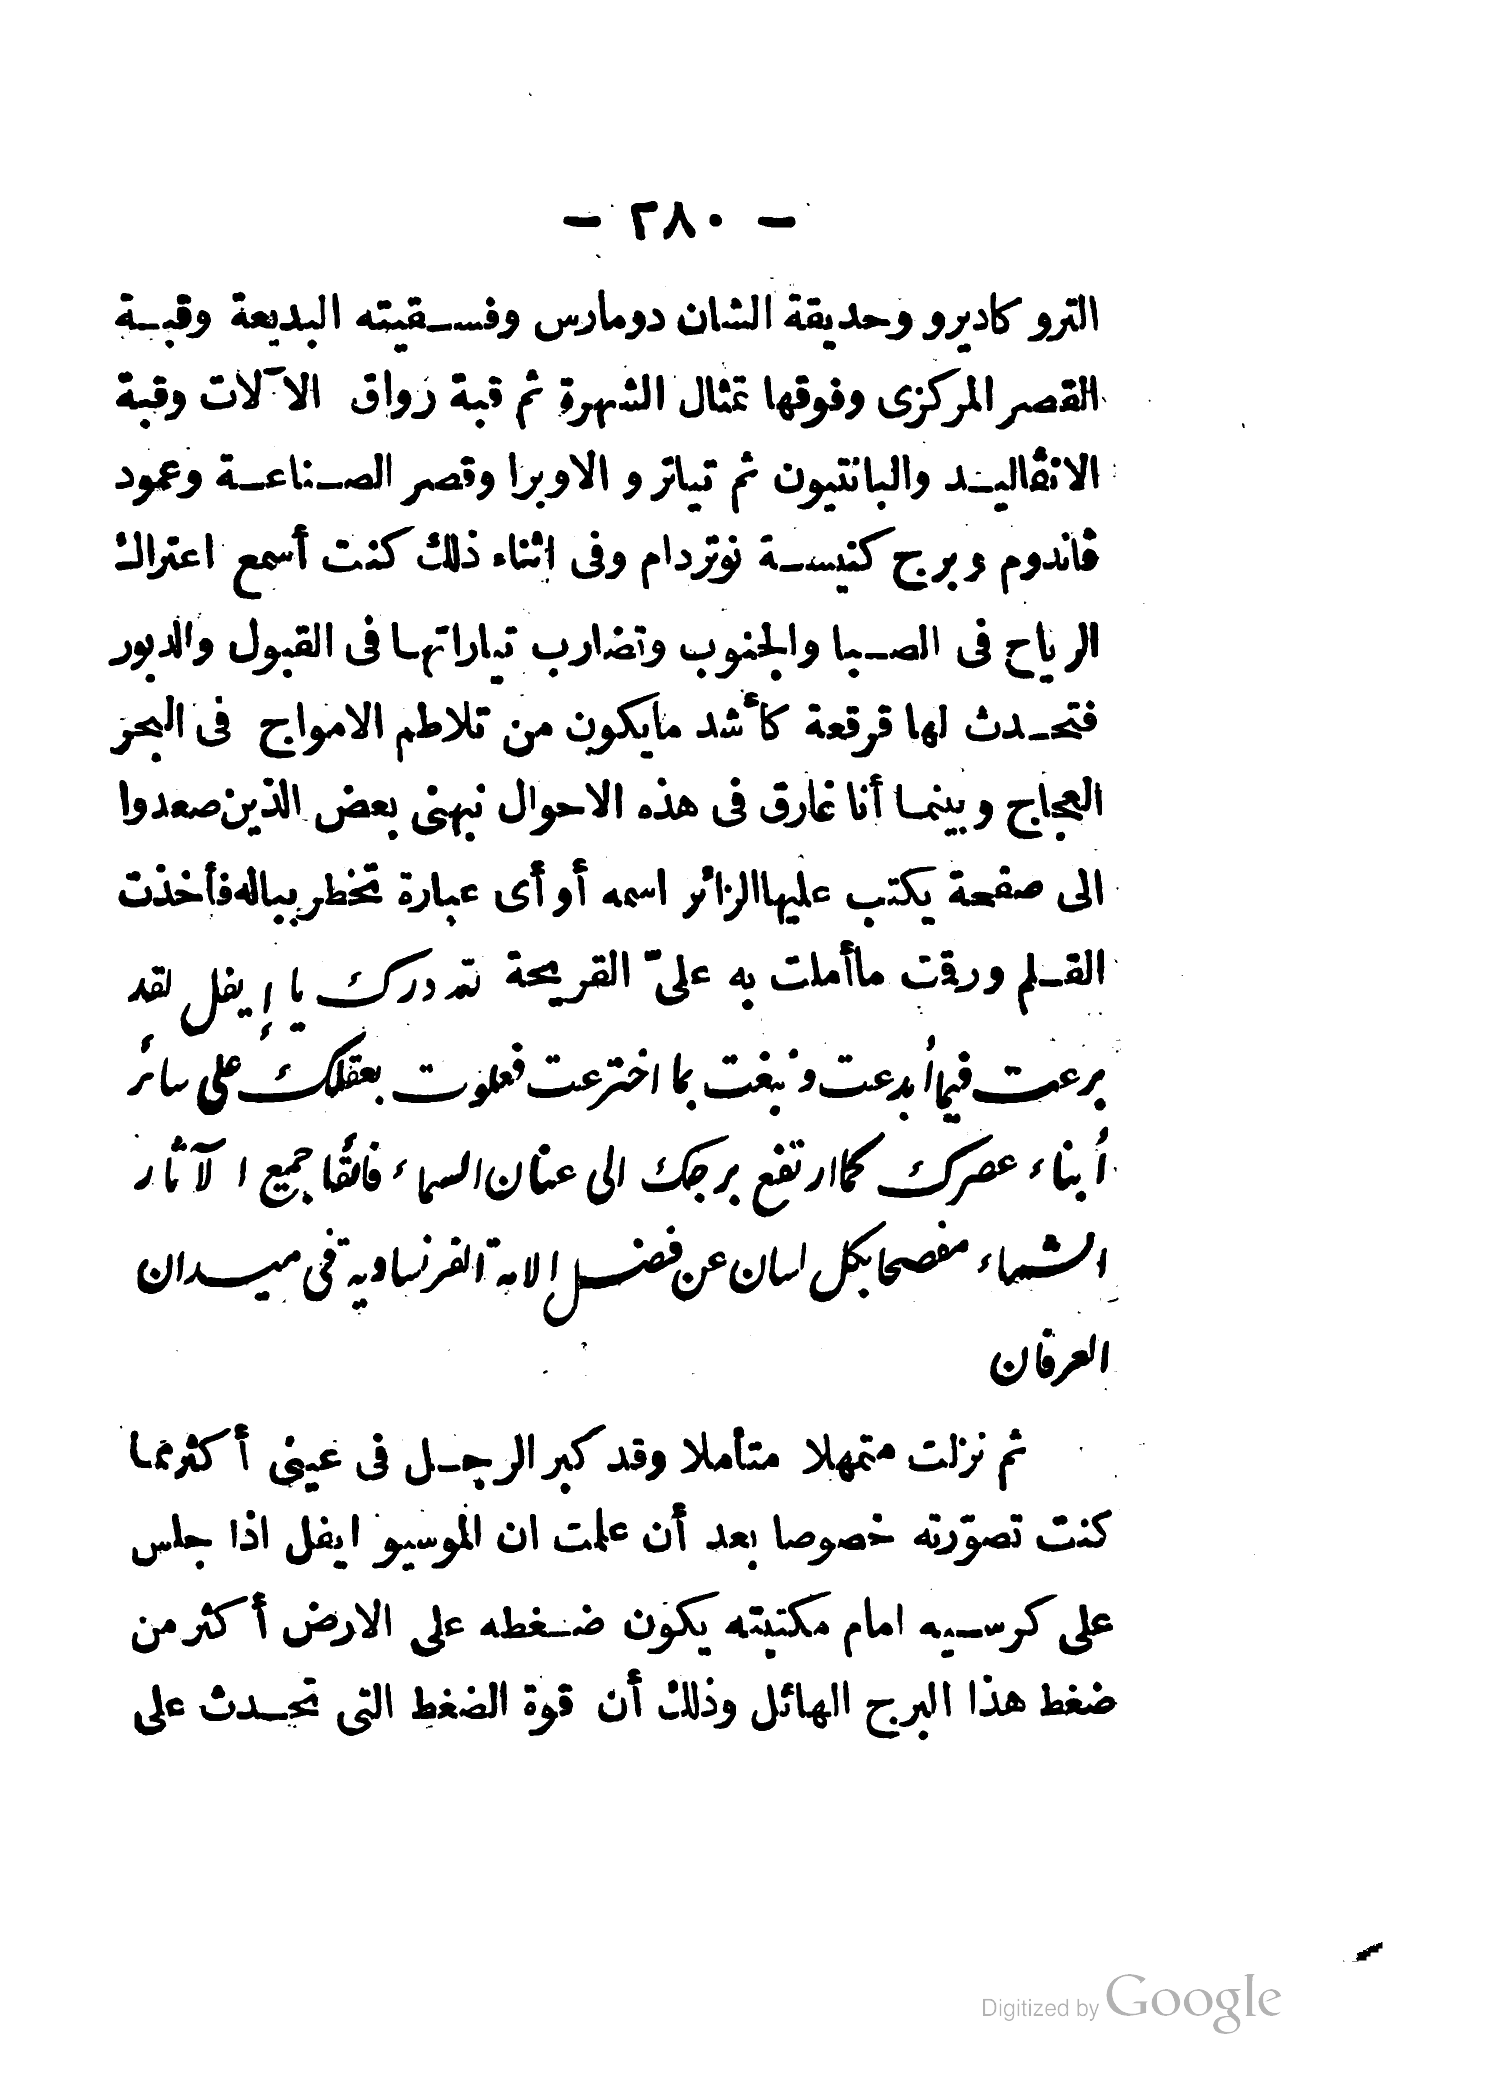 — ٢٨٠ —
التروكاديرو وحديقة الشان دومارس وفسقيته البديعة وقبة
القصر المركزى وفوقها تمثال الشهرة ثم قبة رواق الآلات وقبة
الانڤاليد والبانتيون ثم تياترو الاوبرا وقصر الصناعة وعمود
ڤاندوم وبرج كنيسة نوتردام وفى اثناء ذلك كنت أسمع اعتراك
الرياح فى الصبا والجنوب وتضارب تياراتها فى القبول والدبور
فتحدث لها قرقعة كأشد مايكون من تلاطم الامواج فى البحر
العجاج وبينما أنا غارق فى هذه الاحوال نبهنى بعض الذين صعدوا
الى صفحة يكتب عليها الزائر اسمه أو أى عبارة تخطر بباله فأخذت
القلم ورقت ماأملت به علىّ القريحة لله درك يا إيفل لقد
برعت فيما أبدعت ونبغت بما اخترعت فعلوت بعقلك على سائر
أبناء عصرك كما ارتفع برجك الى عنان السماء فائقا جميع الآثار
الشماء مفصحا بكل لسان عن فضل الامة الفرنساوية فى ميدان
العرفان
ثم نزلت متمهلا متأملا وقد كبر الرجل فى عينى أكثر مما
كنت تصوّرته خصوصا بعد أن علمت ان الموسيو ايفل اذا جلس
على كرسيه امام مكتبته يكون ضغطه على الارض أكثر من
ضغط هذا البرج الهائل وذلك أن قوة الضغط التى تحدث على
Digitized by Google